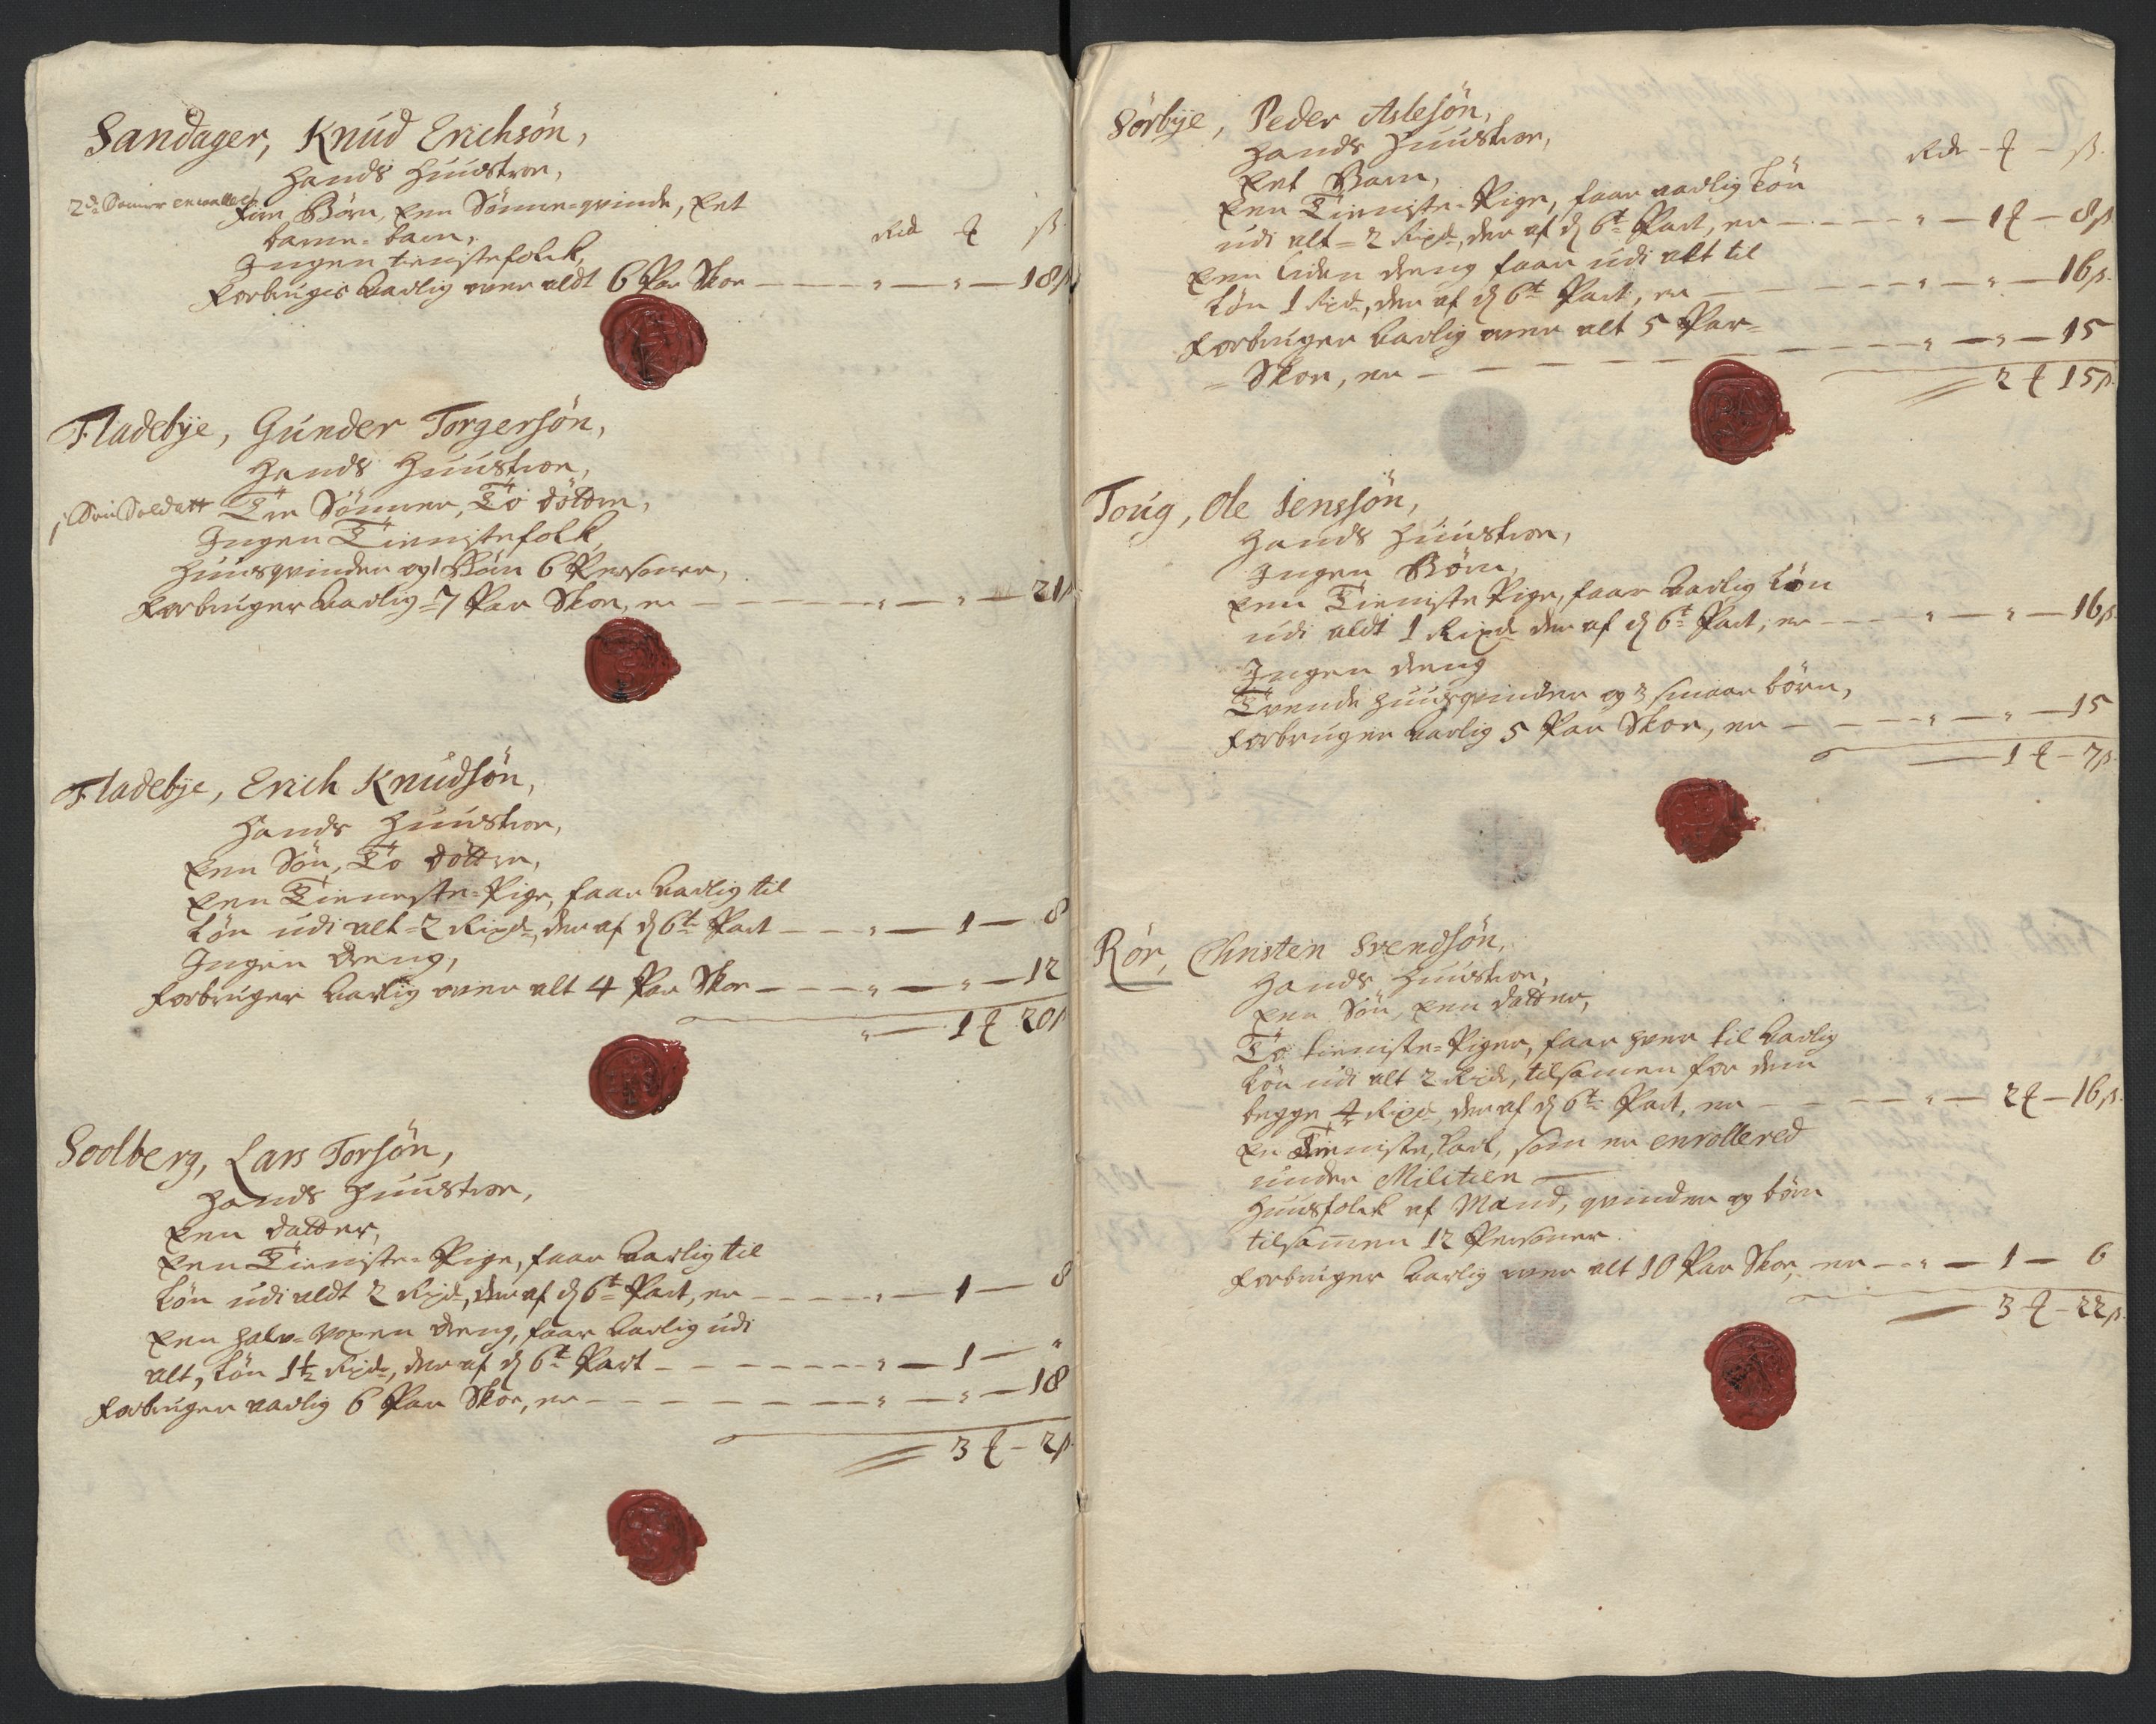 Sandager, Knud Erichsön,
Hands Huustroe,
2de Sønner enrollerede
Fire Börn, Een Sönne-qvinde, Eet
barne-barn,
Rd ℔ ß.
Ingen tienistefolck,
Forbruges Aarlig over aldt 6 Par Skoe — — — „ — „ — 18ß
Fladebÿe, Gúnder Torgersön,
Hands Huustroe,
1 Søn Soldatt
Tre Sönner, To döttre,
Ingen Tienistefolk,
Huusqvinder og Börn 6 Personer,
Forbruger Aarlig 7 Par Skoe, er — — — „ — „ — 21ß
Fladebÿe, Erich Knudsön,
Hands Huustroe,
Een Sön, To döttre,
Een Tieneste-Pige, faar Aarlig til
Lön udi alt = 2 Rixdr, der af d 6te Part — — „ — 1 — 8
Ingen dreng,
Forbruger Aarlig over alt 4 Par Skoe — — — „ — „ — 12
„ — 1 ℔ 20ß
Soolberg, Lars Torsön,
Hands Huustroe,
Een datter,
Een Tieniste-Pige, faar Aarlig til
Lön udi aldt 2 Rixdr, der af d 6te Part, er — — — „ — 1 — 8
Een halv-voxen dreng, faar Aarlig udi
alt, Lön 1½ Rixdr, der af d 6te Part — — — — „ — 1 — „
Forbruger aarlig 6 Par Skoe, er — — — — „ — „ — 18
3 ℔ — 2ß
Sörbÿe, Peder Aslesön,
Hands Huustroe,
Rdr — ℔ — ß.
Eet Barn,
Een Tieniste-Pige, faar aarlig Lön
udi alt = 2 Rixdr, der af d 6te Part, er — — — „ — 1℔ — 8ß
Een liden dreng faar udi alt til
Lön 1 Rixdr, der af d 6te Part, er — — — „ — „ — 16ß.
Forbruger Aarlig over alt 5 Par=
=Skoe, er — — — — — — „ — „ — 15
2 ℔ 15ß
Toúg, Ole Jenssön,
Hands Huustroe,
Ingen Börn,
Een Tieniste Pige, faar Aarlig Lön
udi aldt 1 Rixdr der af d 6te Part, er — — — „ — „ — 16ß.
Ingen dreng
Tvende Huusqvinder og 3 smaae börn,
Forbruger Aarlig 5 Par Skoe, er — — — „ — „ — 15
— 1 ℔ — 7ß
Rör, Christen Svendsön,
Hands Huustroe,
Een Sön, Een datter,
To tieniste-Piger, faar hver til Aarlig
Lön udi alt 2 Rixdr, tilsamen for dem
begge 4 Rixdr, der af d 6te Part, er — — — „ — 2℔ — 16ß.
En Tieniste, Karl, som er enrollered
under Militien —
Huusfolck af Mand, qvinder og börn
tilsamen 12 Personer.
Forbruger Aarlig over alt 10 Par Skoe, er — — „ — 1 — 6
3 ℔ — 22ß